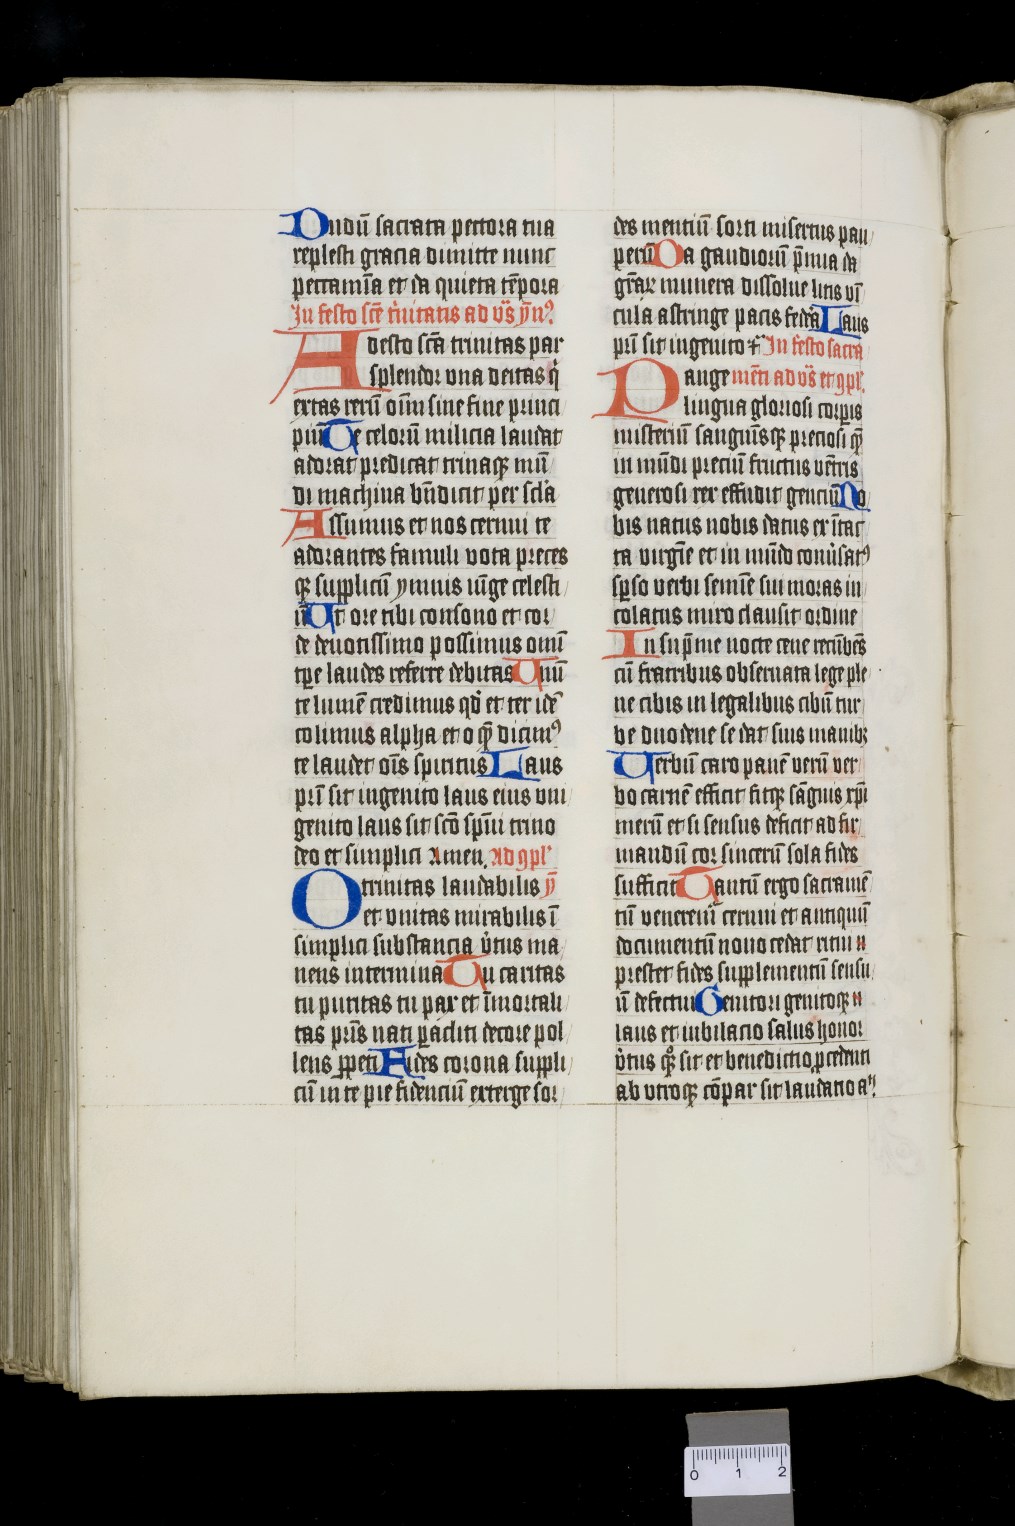 Dudū sacrata pectora tua
replesti gracia dimitte nunc
peccamīa et da quieta tēpora
In festo scē tͥnitatis ad vs̄ ȳnꝰ
Adesto scā trinitas par
splendor vna deitas q̇
extas rerū oīm sine fine princi
piū Te celorū milicia laudat
adorat predicat trinaqꝫ mū
di machina bn̄dicit per scl̄a
Assumus et nos cernui te
adorantes famuli vota preces
qꝫ supplicū ymnis iūge celesti
ū Ut ore tibi consono et cor
de deuotissimo possimus omī
tꝑe laudes referre debitas Unū
te lumē credimus qd̄ et ter idē
colimus alpha et o q̄ꝫ dicimꝰ
te laudet oīs spiritus Laus
pr̄i sit ingenito laus eius vni
genito laus sit scō spūi trino
deo et simplici Amen. Ad ꝯpl̄
O trinitas laudabilis ȳ
et vnitas mirabilis ī
simplici substancia v̓tus ma
nens intermina Tu caritas
tu puritas tu pax et īmortali
tas pr̄is nati ꝑacliti decore pol
lens ꝑpeti Fides corona suppli
cū in te pie fidenciū exterge sor
des mentiū sorti misertus pau
perū Da gaudiorū p̄mia da
grā̄ꝝ munera dissolue litis vī
cula astringe pacis fedr̄a Laus
pr̄i sit ingenito ⁊c̄ In festo sacra
Pange mēti ad vs̄ et ꝯpl̄.
lingua gloriosi corꝑis
misteriū sanguīsqꝫ preciosi q̄ꝫ
in mūdi preciū fructus vētris
generosi rex effudit genciū No
bis natus nobis datus ex ītac
ta virgīe et in mūdo conūsatꝰ
sꝑso verbi semīe sui moras in
colatus miro clausit ordine
In sup̄me nocte cene recūbēs
cū fratribus obseruata lege ple
ne cibis in legalibus cibū tur
be duodene se dat suis manibꝫ
Verbū caro panē verū ver
bo carnē efficit fitqꝫ sāguis xp̄i
merū et si sensus deficit ad fir
mandū cor sincerū sola fides
sufficit Tantū ergo sacramē
tū veneremᷣ cernui et antiquū
documentū nouo cedat ritui
prestet fides supplementū sensu
ū defectui Genitori genitoqꝫ
laus et iubilacio salus honor
v̓tus qꝫ sit et benedictio ꝓcedenti
ab vtroqꝫ cōpar sit laudatio a